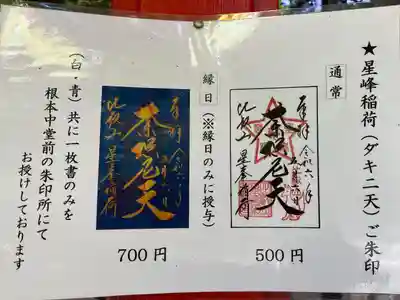 ★星峰稲荷（ダキニ天）ご朱印
通常
奉拝
令和六年
荼枳尼天
比叡山
星峯稲荷
500 円
縁日（※縁日のみに授与）
奉拝
荼枳尼天
比叡山
星峯稲荷
700 円
（白・青）共に一枚書のみを
根本中堂前の朱印所にて
お授けしております